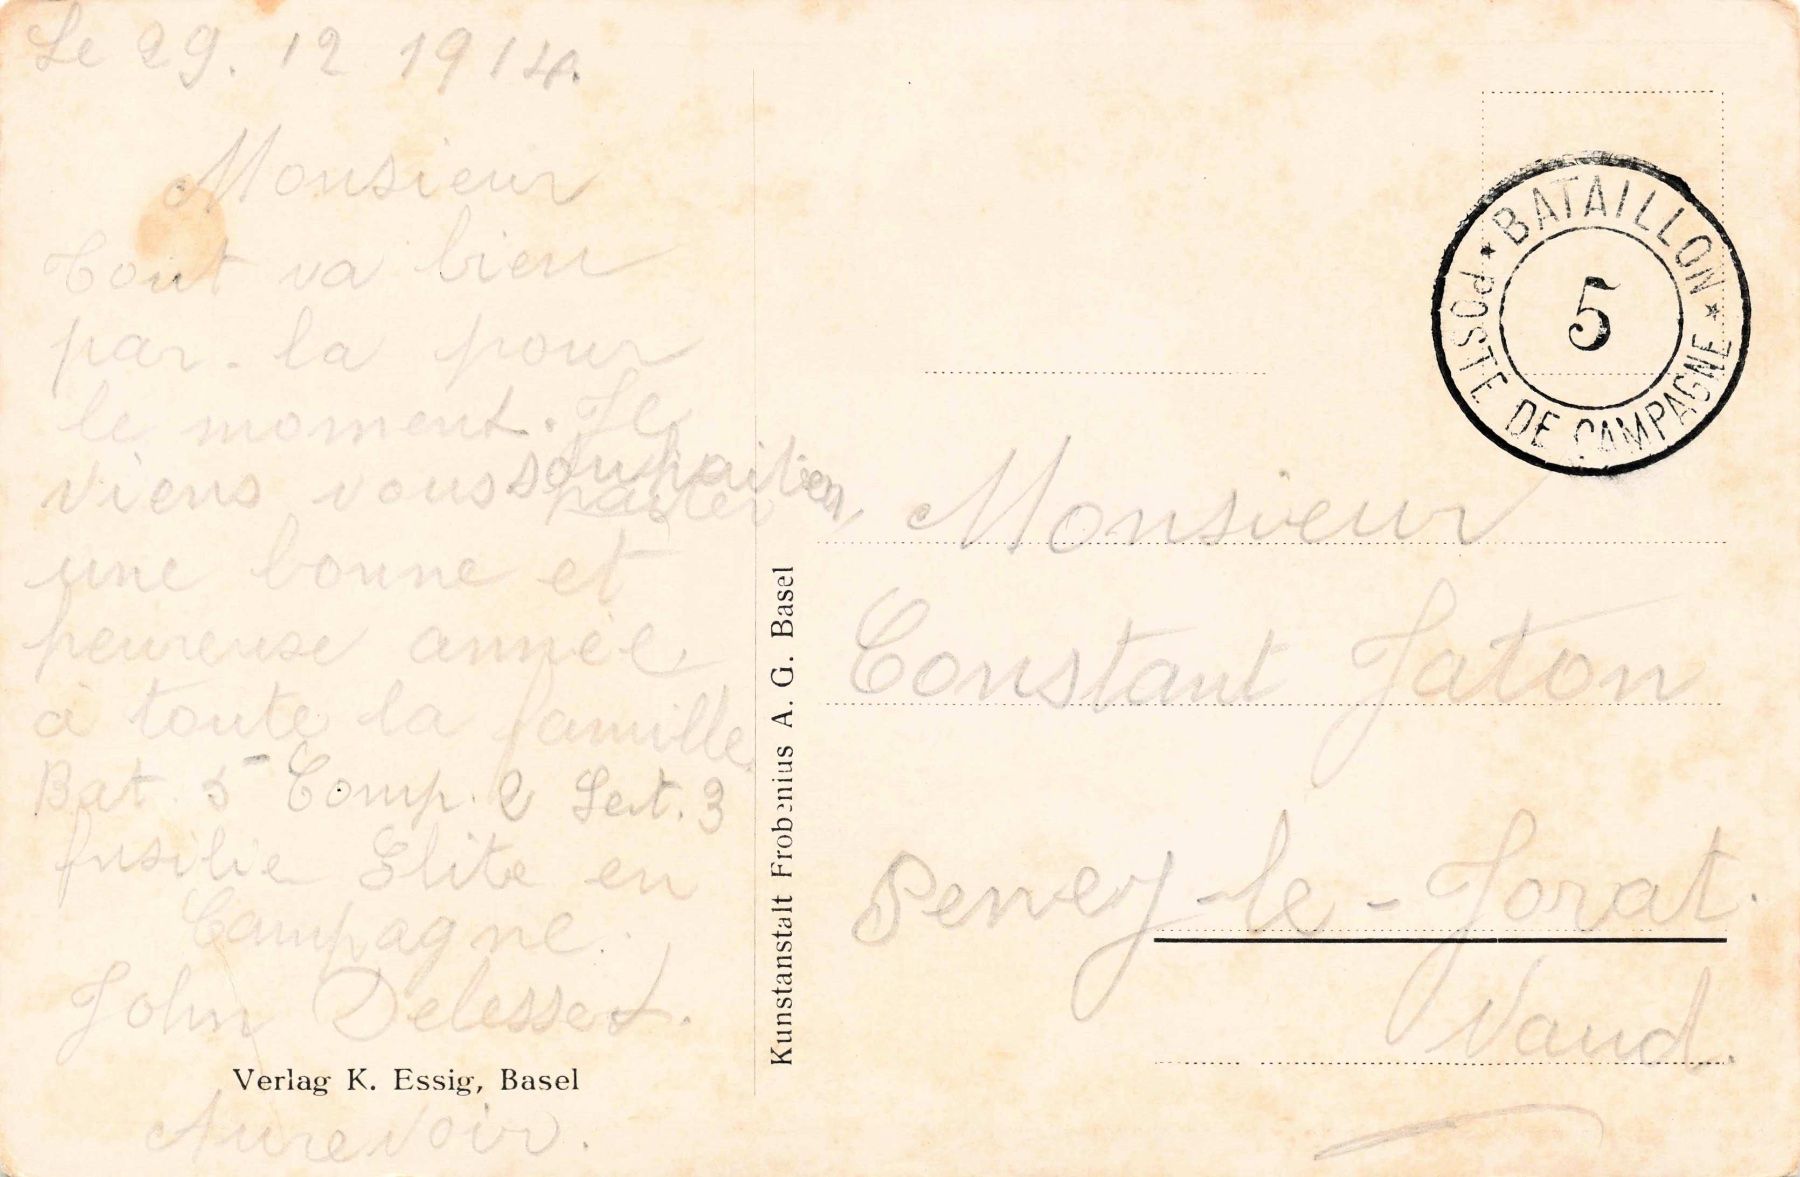 Le 29. 12 1914.
Monsieur
Tout va bien
par-la pour
le moment. Je
viens vous souhaiter
une bonne et
heureuse année
à toute la famille.
Bat. 5 Comp. 2 Sect. 3
fusilie Elite en
Campagne.
John Delessert.
Verlag K. Essig, Basel
Aurevoir.
Kunstanstalt Frobenius A. G. Basel
* BATAILLON *
5
POSTE DE CAMPAGNE
Monsieur
Constant Jaton
Peney-le-Jorat.
Vaud.